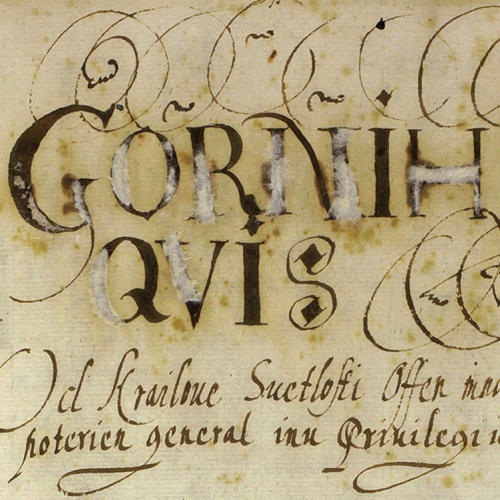 GÖRNIH
QVIS
Od Krailoue Suetlosti Offen inu
poterien general inu Priuilegiu